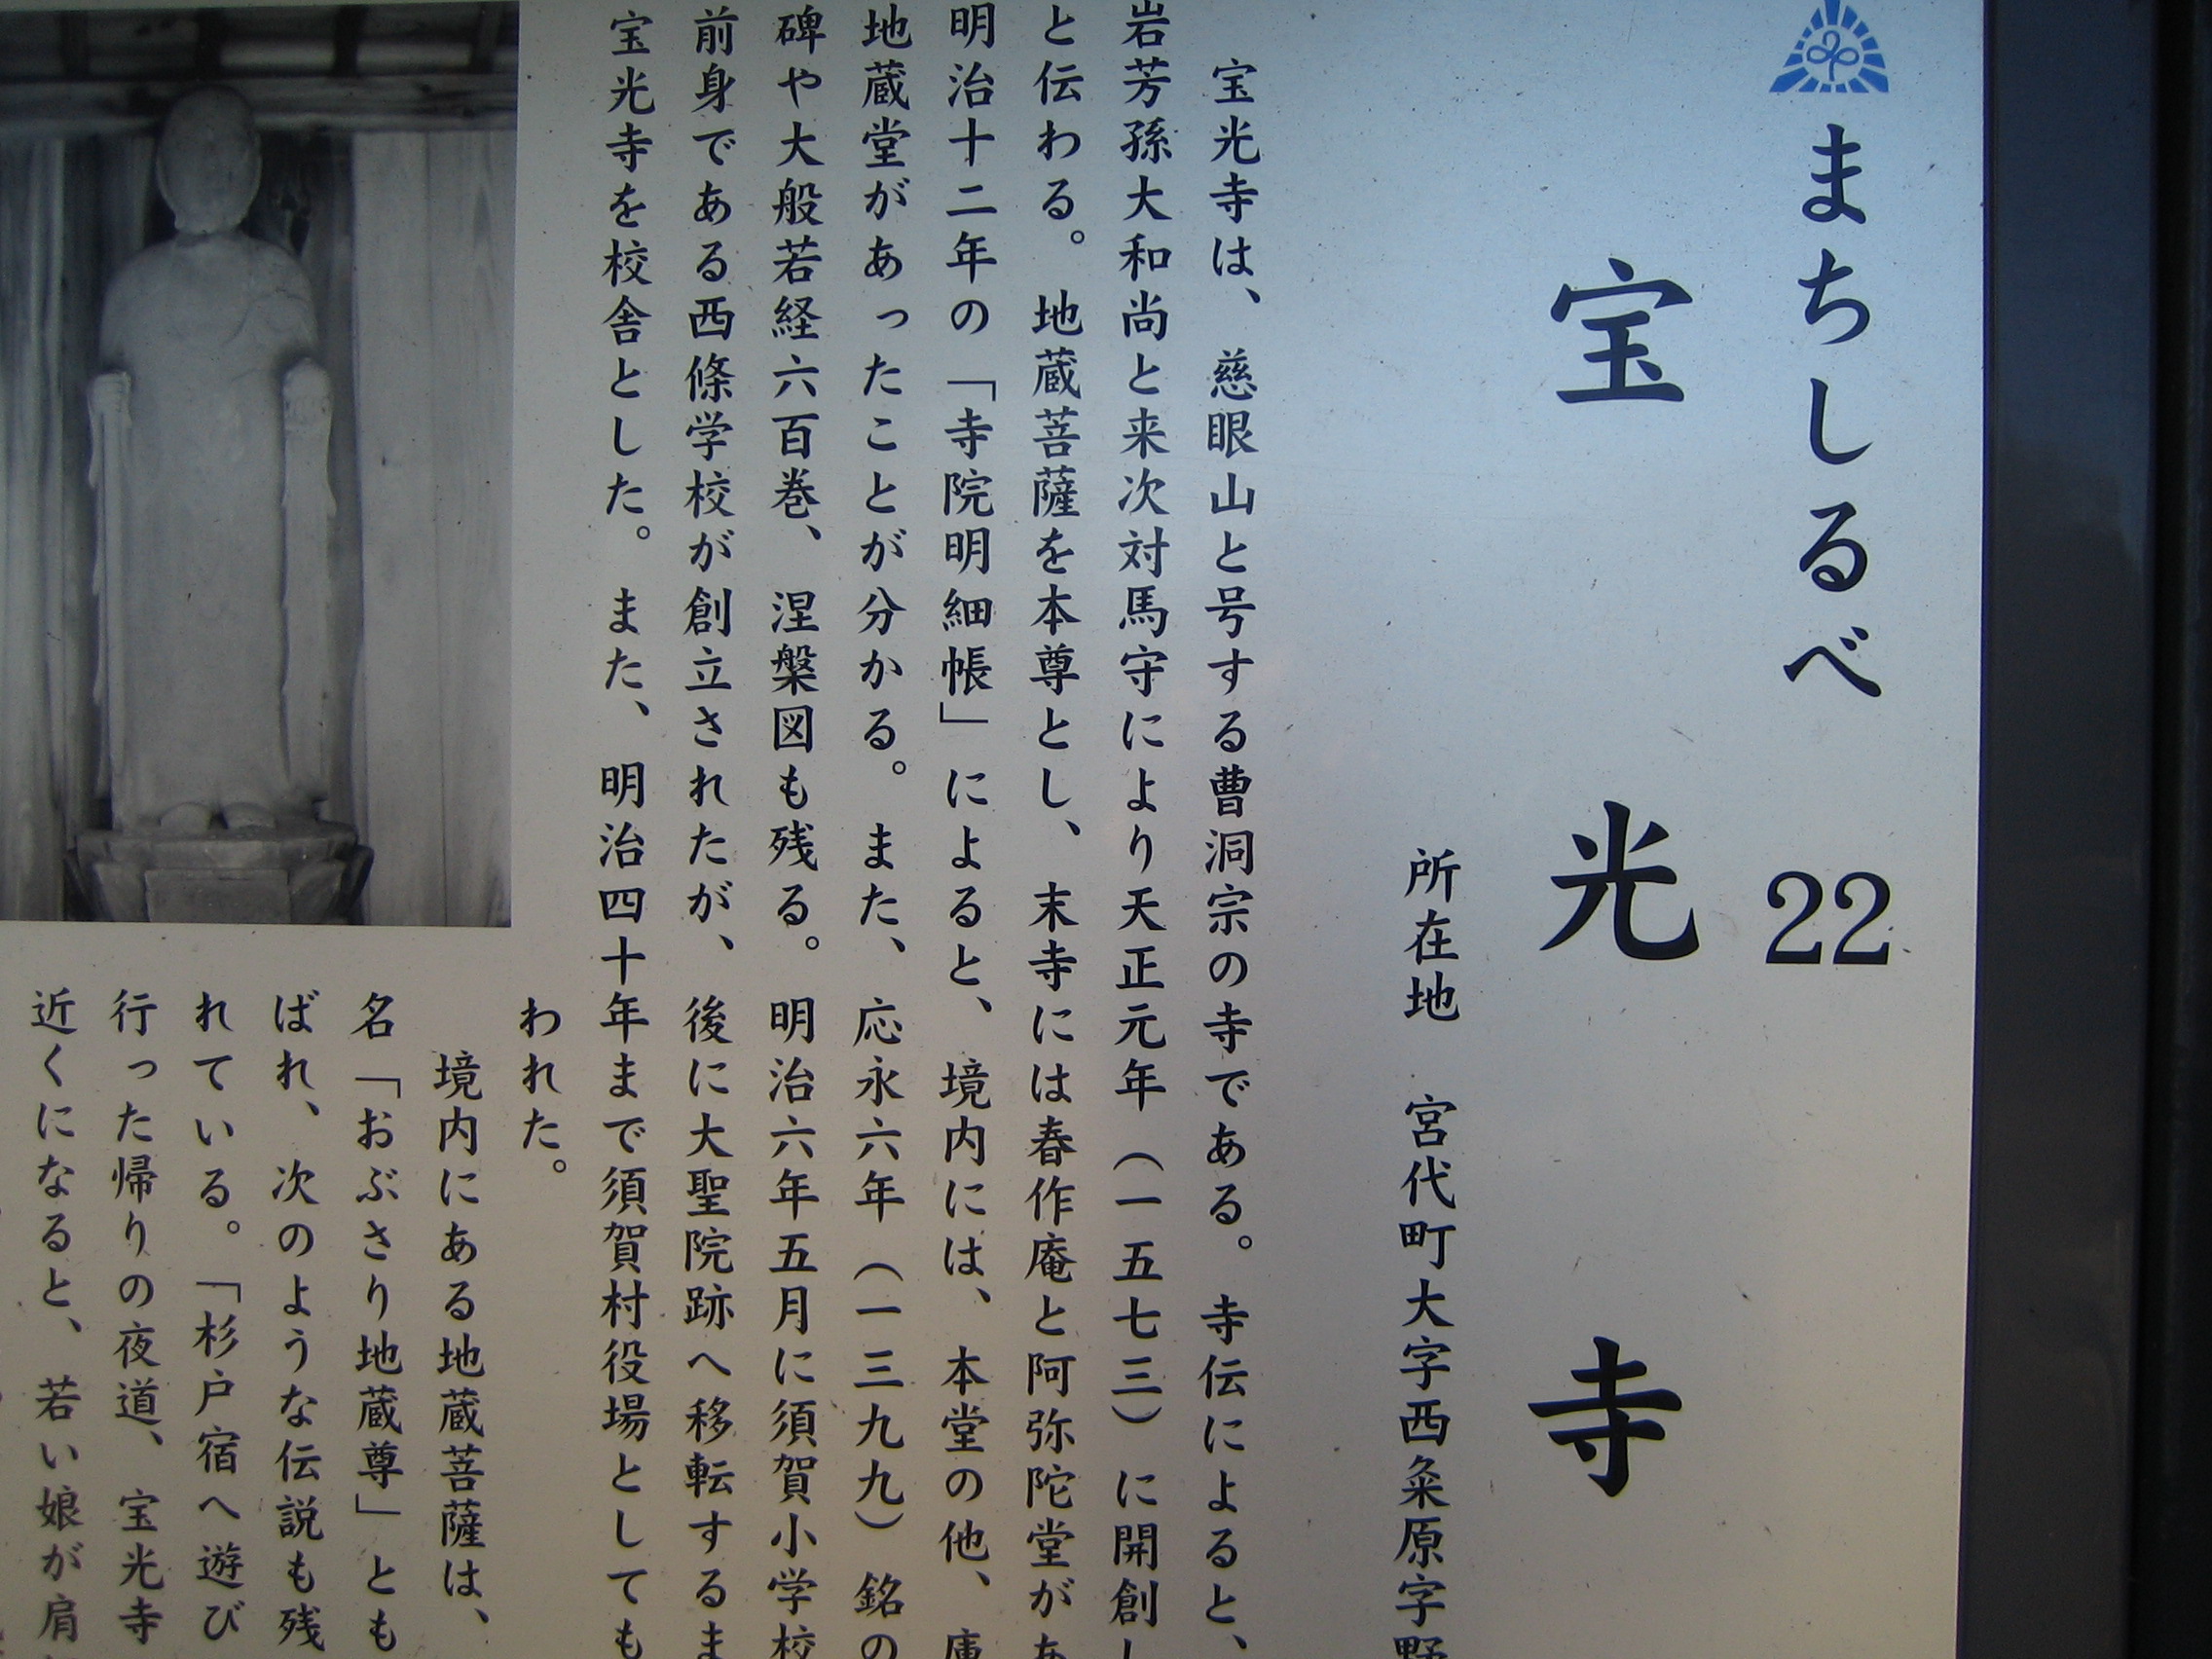 まちしるべ 22
宝光寺
所在地 宮代町大字西粂原字野
宝光寺は、慈眼山と号する曹洞宗の寺である。寺伝によると、
岩芳孫大和尚と来次対馬守により天正元年(一五七三)に開創し
と伝わる。地蔵菩薩を本尊とし、末寺には春作庵と阿弥陀堂があ
明治十二年の「寺院明細帳」によると、境内には、本堂の他、庫
地蔵堂があったことが分かる。また、応永六年(一三九九)銘の
碑や大般若経六百巻、涅槃図も残る。明治六年五月に須賀小学校
前身である西條学校が創立されたが、後に大聖院跡へ移転するま
宝光寺を校舎とした。また、明治四十年まで須賀村役場としても
われた。
境内にある地蔵菩薩は、
名「おぶさり地蔵尊」とも
ばれ、次のような伝説も残
れている。「杉戸宿へ遊び
行った帰りの夜道、宝光寺
近くになると、若い娘が肩